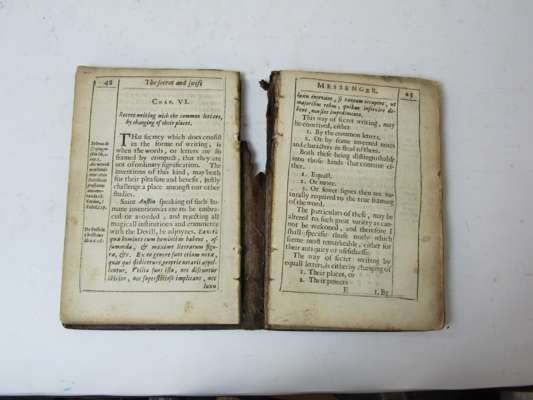 48 The secret and swift
CHAP. VI.
Secret writing with the common letters,
by changing of their places.
THat secrecy which does consist
in the forme of writing, is
when the words, or letters are so
framed by compact, that they are
not of ordinary signification. The
inventions of this kind, may both
for their pleasure and benefit, justly
challenge a place amongst our other
studies.
Saint Austin speaking of such hu-
mane inventions as are to be imbra-
ced or avoided, and rejecting all
magicall institutions and commerce
with the Devill, he adjoynes, Ea
quæ homines cum hominibus habent, as-
sumenda, & maximè literarum figu-
ræ, &c. Ex eo genere sunt etiam notæ,
quas qui didicerunt, propriè notarii appel-
lantur, Utilia sunt ista, nec discuntur
illicitè, nec superstitiosè implicant, nec
luxu
MESSENGER.
luxu enervant, si tantum occupent, ut
majoribus rebus, quibus inservire de-
bent, non sint impedimento.
This way of secret writing, may
be contrived, either
1. By the common letters,
2. Or by some invented notes
and characters in stead of them.
Both these being distinguishable
into those kinds that containe ei-
ther.
1. Equall.
2. Or more.
3. Or fewer signes then are na-
turally required to the true framing
of the word.
The particulars of these, may be
altered to such great variety as can-
not be reckoned, and therefore I
shall specifie those onely which
seeme most remarkeable, either for
their antiquity or usefulnesse.
The way of secret writing by
equall letters, is either by changing of
1. Their places, or
2. Their powers
E 1. By